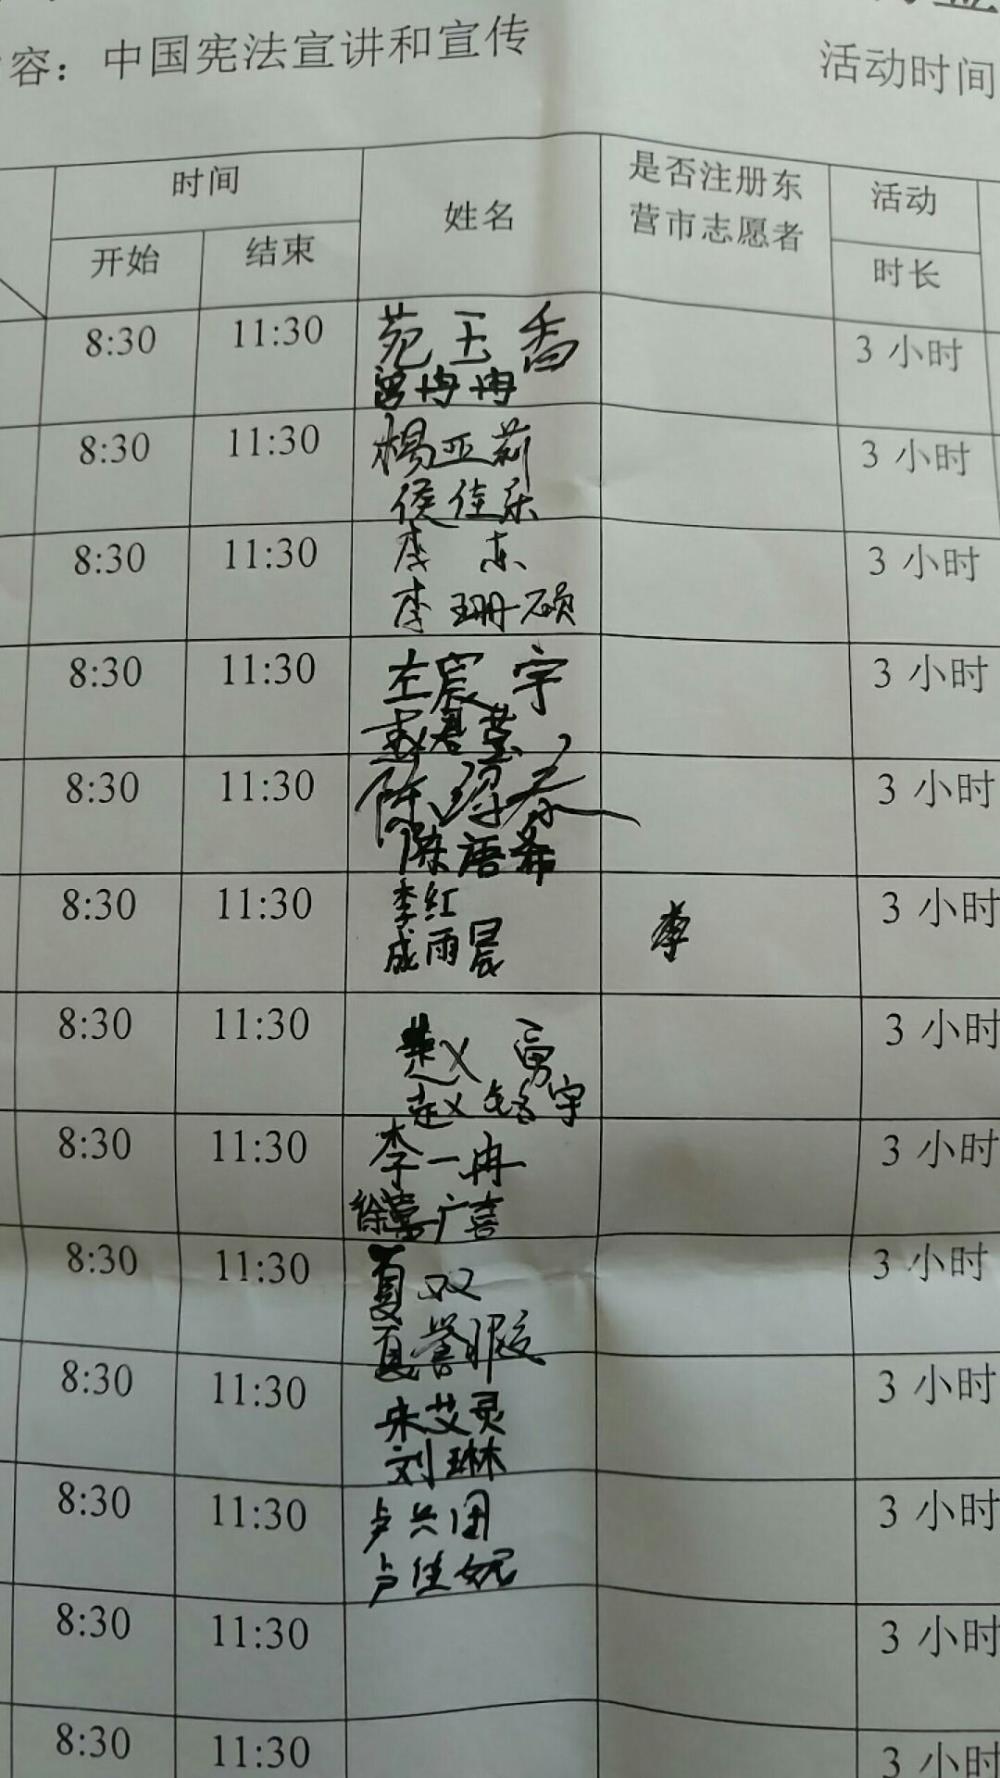 容：中国宪法宣讲和宣传 活动时间
时间 姓名 是否注册东营市志愿者 活动
开始 结束 时长
8:30 11:30 苑玉香 3 小时
冉冉
8:30 11:30 杨亚莉 3 小时
侯佳乐
8:30 11:30 李 东 3 小时
李珊硕
8:30 11:30 左宸宇 3 小时
8:30 11:30 陈 3 小时
陈语希
8:30 11:30 李红 李 3 小时
成雨晨
8:30 11:30 赵 勇 3 小时
赵铭宇
8:30 11:30 李一冉 3 小时
徐 广喜
8:30 11:30 夏双 3 小时
夏誉暇
8:30 11:30 宋艾灵 3 小时
刘琳
8:30 11:30 卢兴国 3 小时
卢佳妮
8:30 11:30 3 小时
8:30 11:30 3 小时